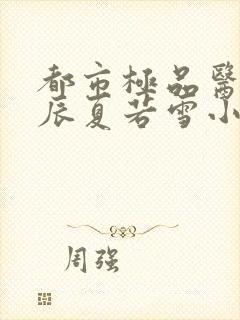 都市極品醫
辰夏若雪小
周强